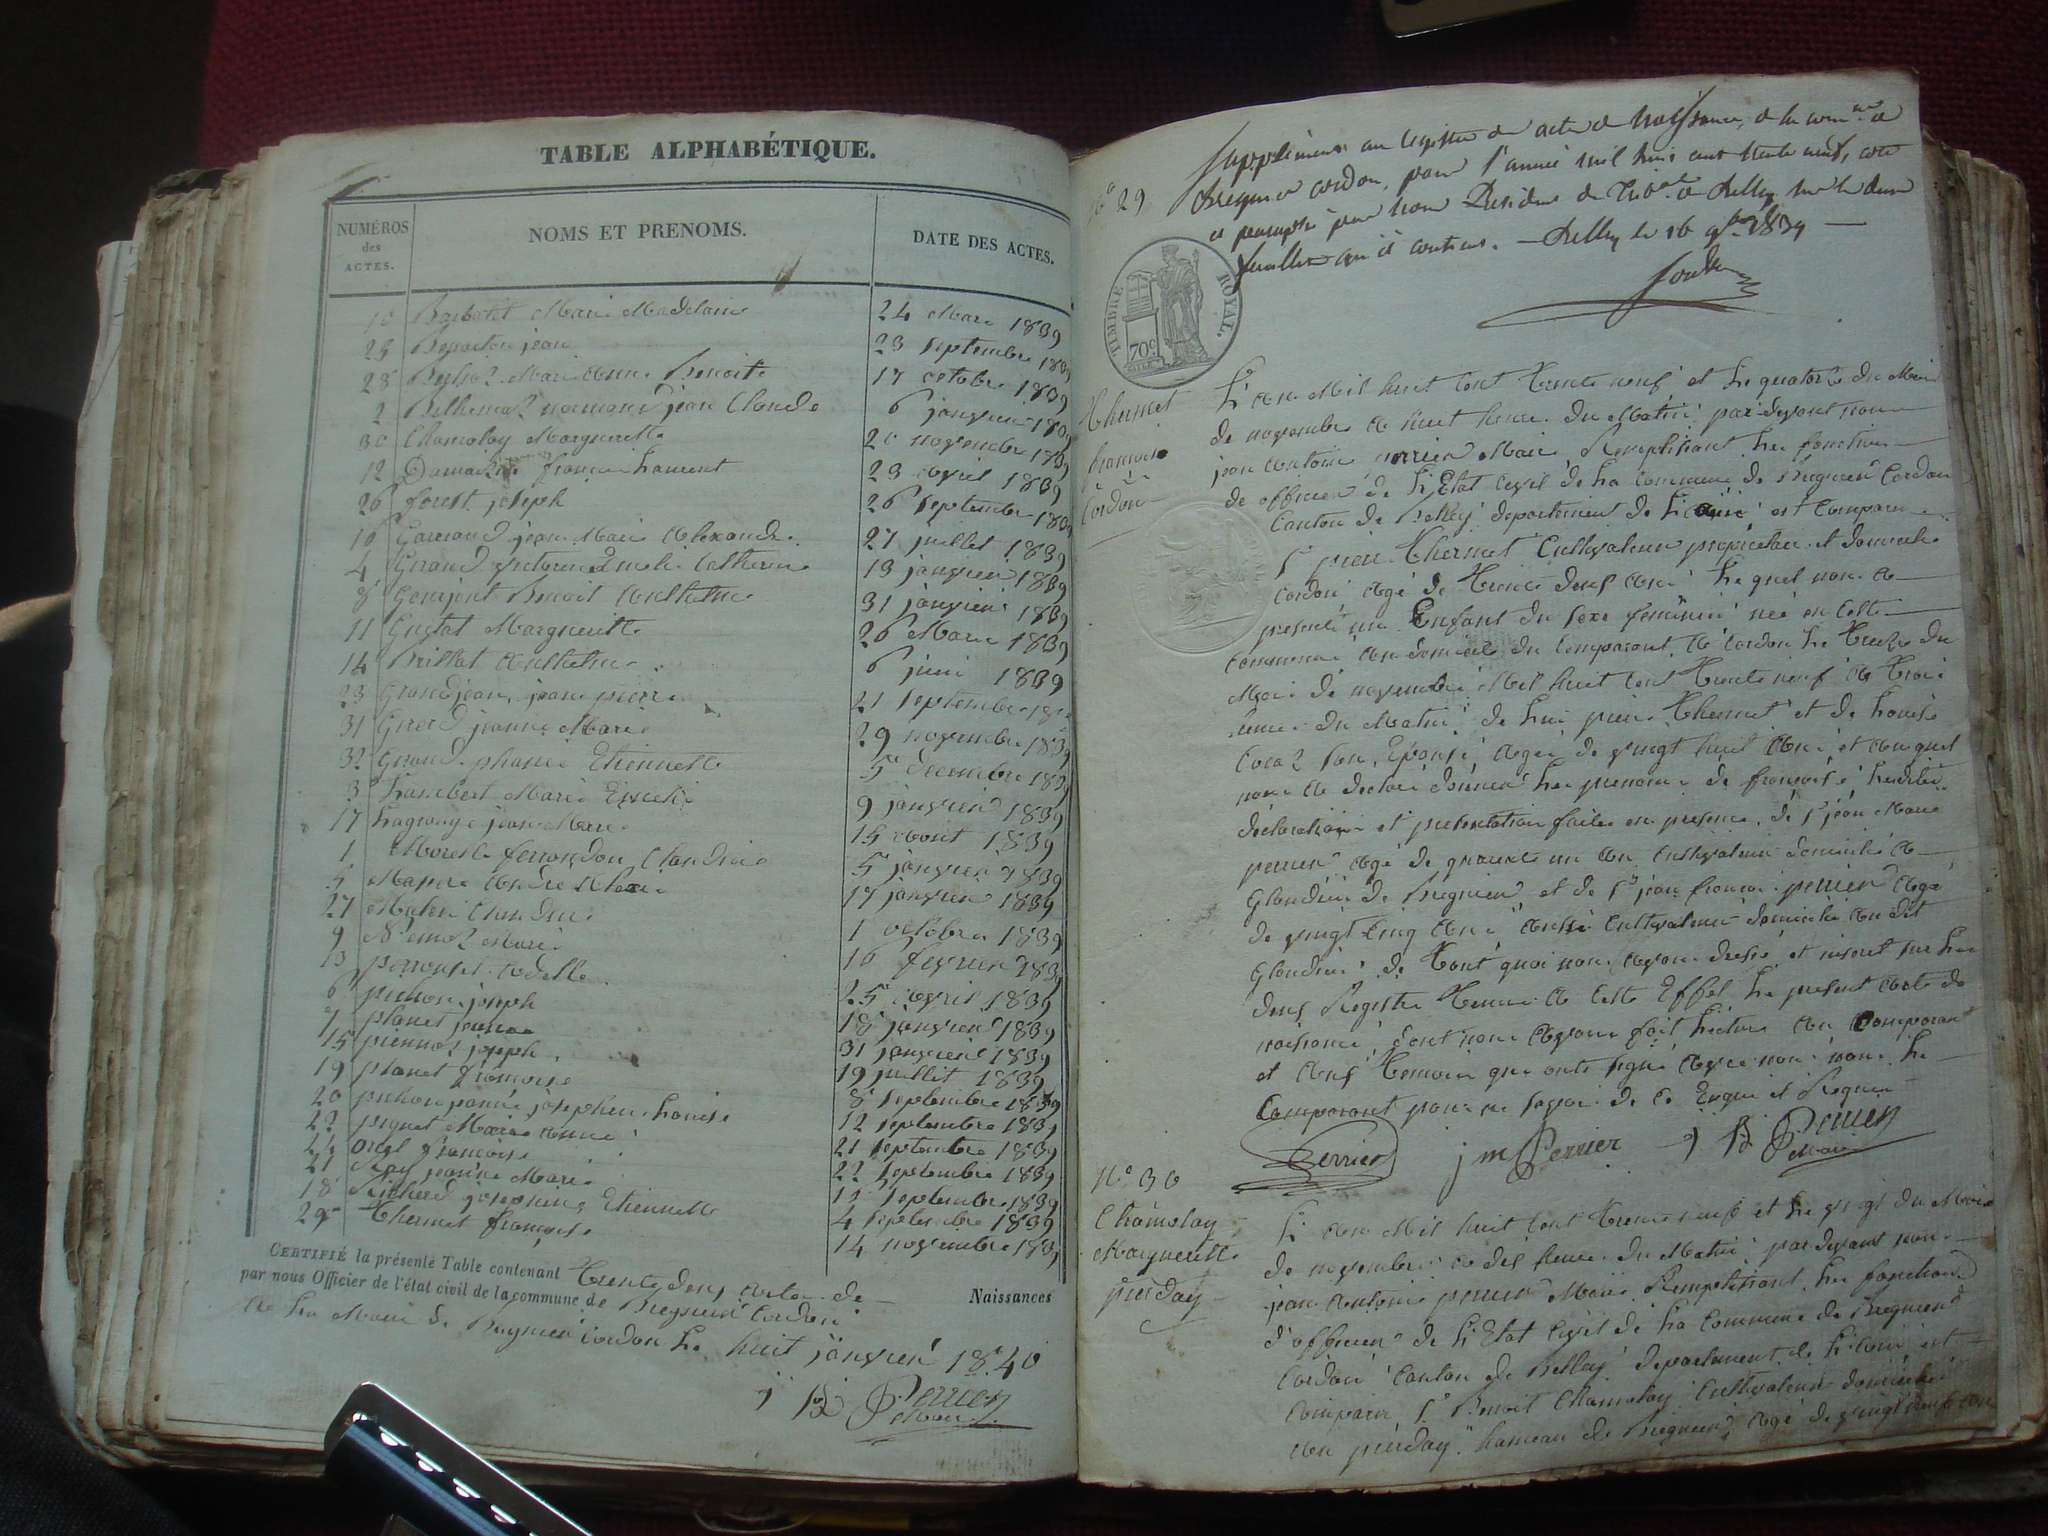 TABLE ALPHABÉTIQUE.
NUMÉROS des ACTES. NOMS ET PRENOMS. DATE DES ACTES.
10 Marie Madelaine 24 Mars 1839
25 jean 23 septembre 1839
28 Marie Anne Benoite 17 octobre 1839
2 jean Claude 6 janvier 1839
30 Chamolay Margueritte 20 novembre 1839
12 françois Laurent 23 avril 1839
26 forest joseph 26 septembre 1839
16 jean Marie Alexandre 27 juillet 1839
4 Catherine 13 janvier 1839
8 Benoit Anthelme 31 janvier 1839
11 Gustat Margueritte 26 Mars 1839
14 Brillat Anthelme 6 juin 1839
23 Grandjean jean pierre 21 septembre 1839
31 jeanne Marie 29 novembre 1839
32 Etiennette 5 decembre 1839
3 Lambert Marie 9 janvier 1839
17 Lagrange jean Marie 15 aout 1839
1 Claudine 5 janvier 1839
5 17 janvier 1839
27 Claudine 1 octobre 1839
9 Marie 16 fevrier 1839
13 Adelle 25 avril 1839
6 pichon joseph 18 janvier 1839
7 planet 31 janvier 1839
15 joseph 19 juillet 1839
19 planet françoise 8 septembre 1839
20 pichon josephine Louise 12 septembre 1839
22 Marie Anne 21 septembre 1839
24 françoise 22 septembre 1839
21 Rey jeanne Marie 12 septembre 1839
18 Richerd josephine Etiennette 4 septembre 1839
29 Thermet françoise 14 novembre 1839
CERTIFIÉ la présente Table contenant trente deux actes de Naissances
par nous Officier de l'état civil de la commune de Bregnier Cordon
à la Mairie de Bregnier Cordon le huit janvier 1840
Perrier
Maire
N° 29
Supplément au registre des actes de naissance, de la com.ne de
Bregnier cordon, pour l'année mil huit cent trente neuf, coté
et paraphé par nous Président du Trib.al de Belley sur les deux
feuillets qu'il contient. — Belley le 16 9bre 1839 —
TIMBRE ROYAL.
70c
Thermet
françoise
à
Cordon
L'an Mil huit cent trente neuf et le quatorze du Mois
de novembre à huit heures du Matin par devant nous
jean Antoine perrier Maire Remplissant les fonctions
de officier de L'Etat civil de La Commune de Bregnier Cordon
Canton de Belley departement de L'ain est comparu
Sr pierre Thermet Cultivateur propriétaire et domicilié
à Cordon agé de trente deux ans Lequel nous a
presenté un Enfant du sexe feminin née en cette
commune au domicile du comparant à Cordon Le treize du
Mois de novembre Mil huit cent trente neuf à trois
heures du Matin de lui pierre Thermet et de Louise
son Epouse agée de vingt huit ans et auquel
nous a declaré donner Les prenoms de françoise Lesdites
déclaration et presentation faites en presence de Sr jean Marie
perrier agé de quarante un an Cultivateur domicilié à
Glandieu de Bregnier et de Sr jean françois perrier agé
de vingt cinq ans aussi Cultivateur domicilié au dit
Glandieu de tout quoi nous avons dressé et inscrit sur Les
deux Registres tenus à cette Effet Le present acte de
naissance, dont nous avons fait Lecture au Comparant
et aux temoins qui ont signé avec nous non Le
Comparant pour ne savoir de ce Enquis et Requis
Perrier j m Perrier Perrier
Maire
N° 30
Chamolay
Marguerritte
pierday
L'an Mil huit cent trente neuf et Le vingt du Mois
de novembre à dix heures du Matin pardevant nous
jean Antoine perrier Maire Remplissant Les fonctions
d'officier de L'Etat civil de La Commune de Bregnier
Cordon Canton de Belley departement de L'ain est
comparu Sr Benoit Chamolay Cultivateur domicilié
au pierday hameau de Bregnier agé de vingt neuf ans